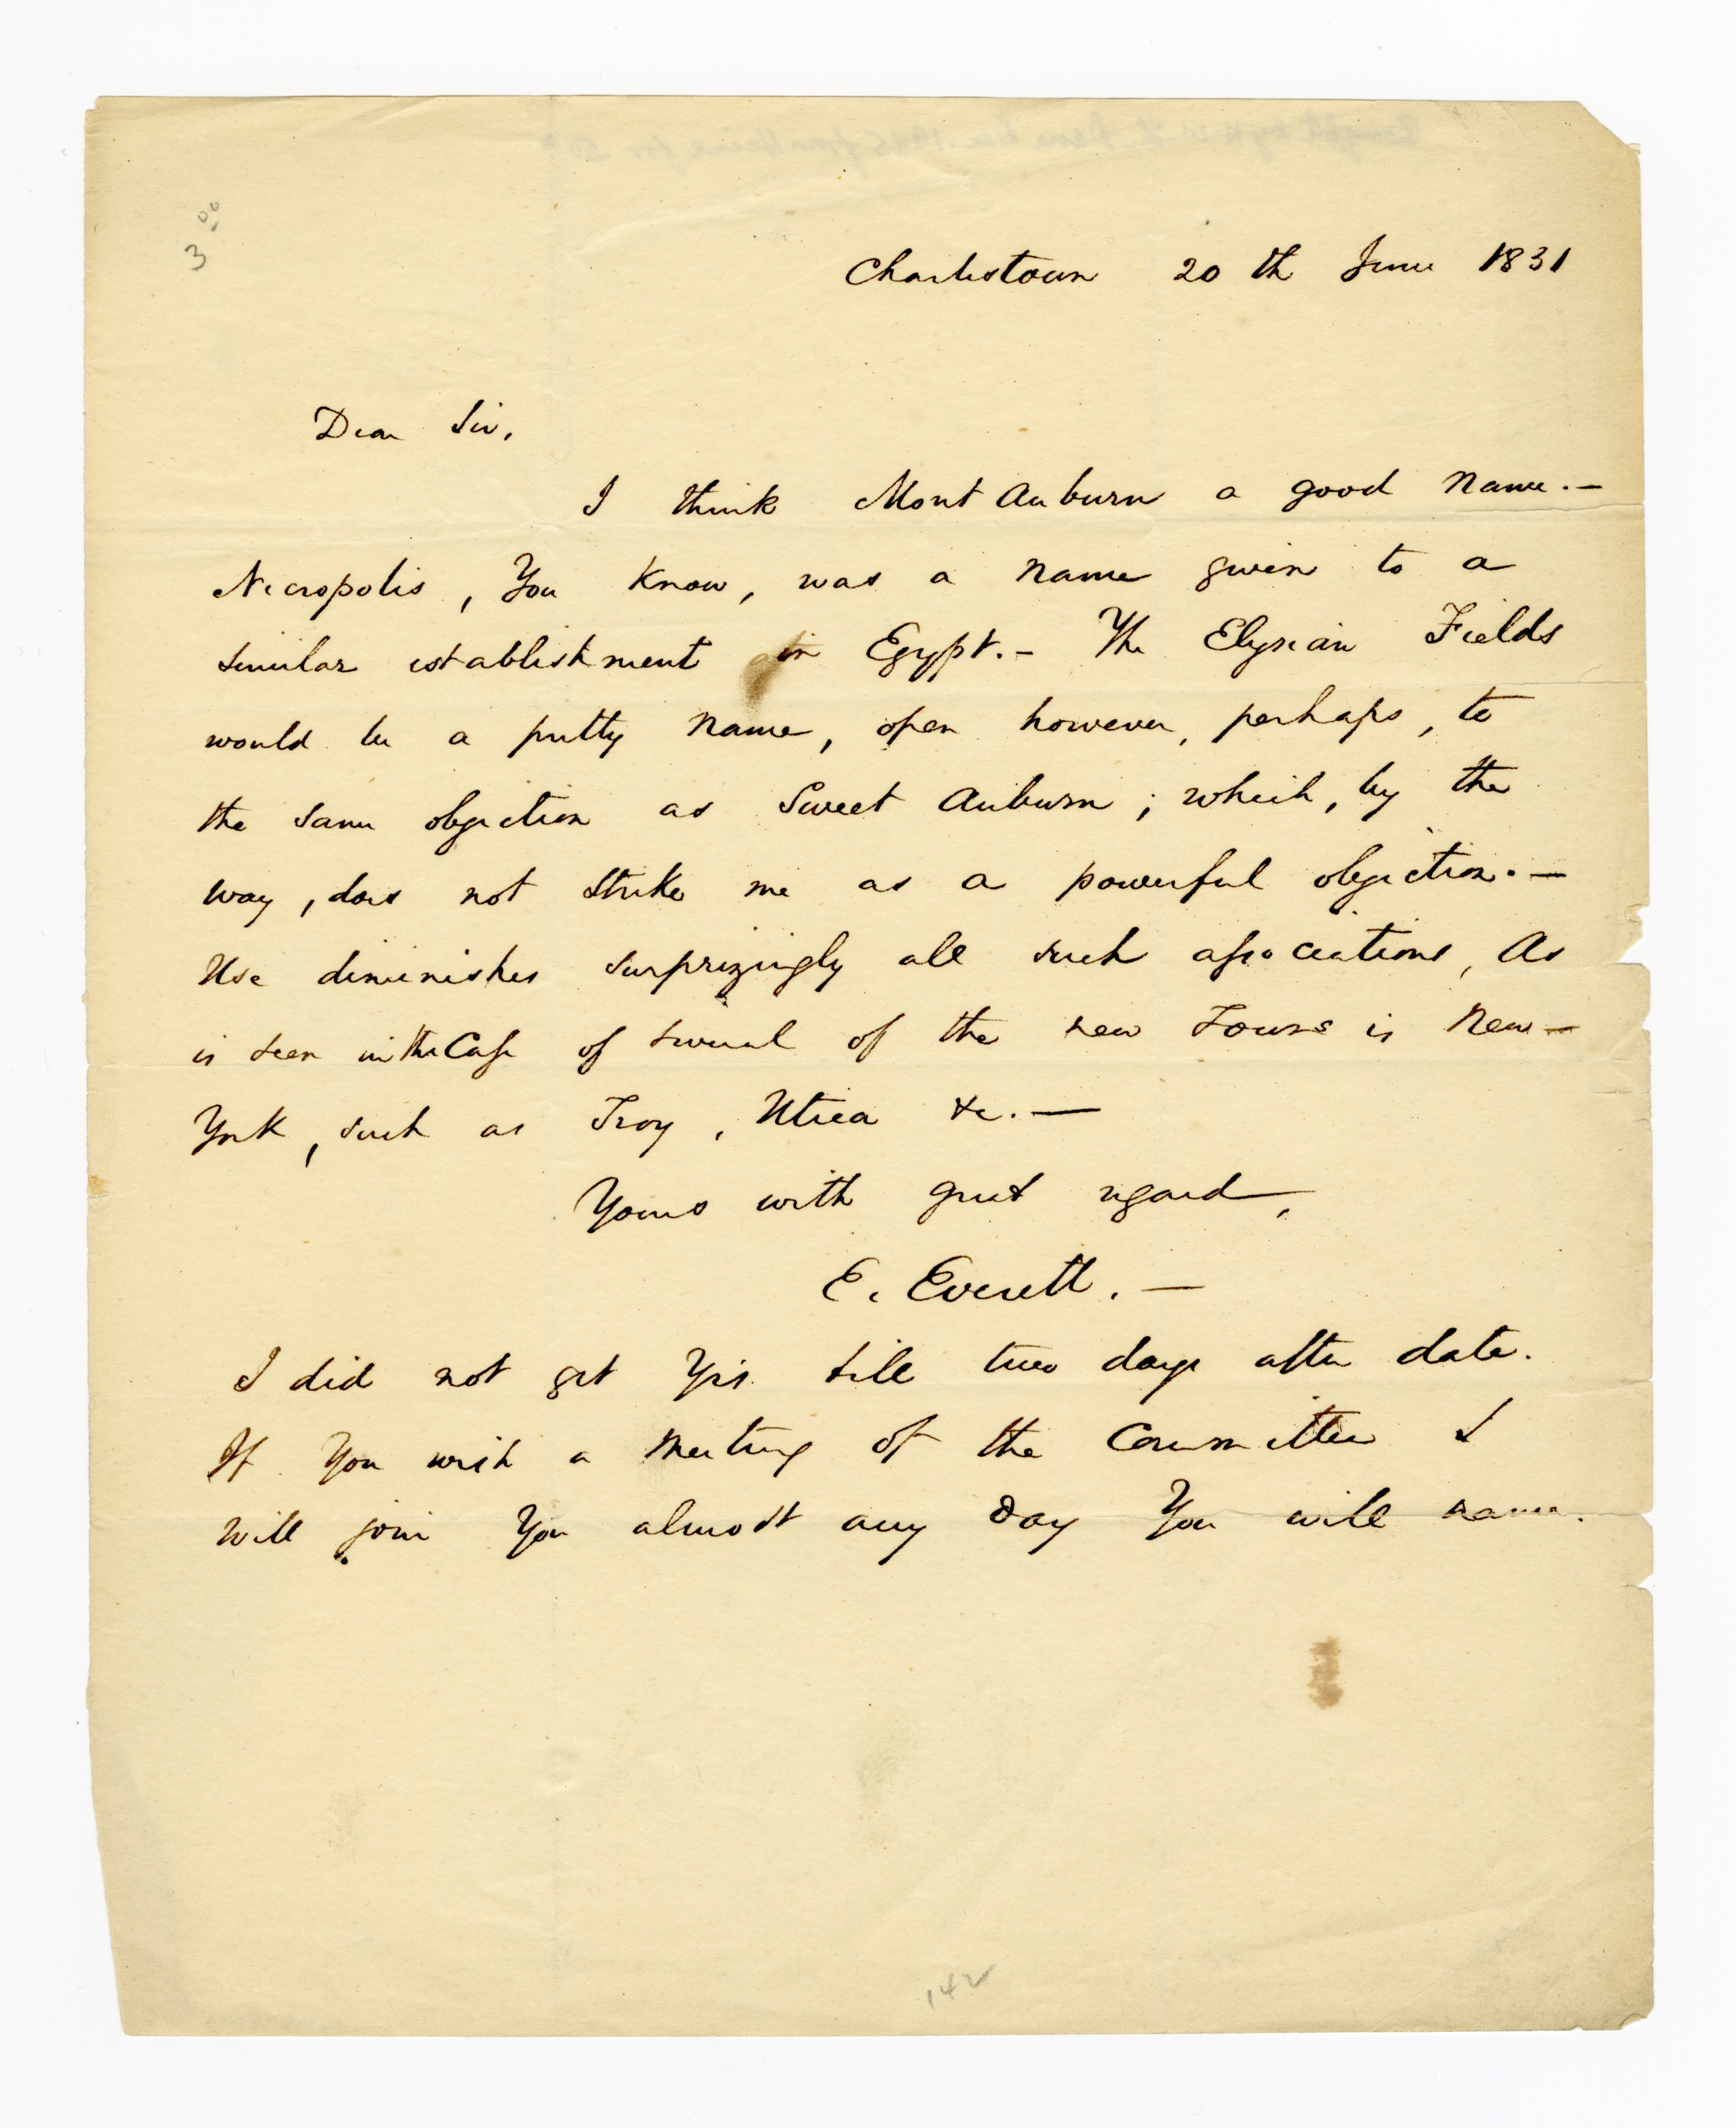 3 00
Charlestown 20 th June 1831
Dear Sir,
I think Mont Auburn a good name.—
Necropolis, You know, was a name given to a
similar establishment in Egypt.— The Elysian Fields
would be a pretty name, open however, perhaps, to
the same objection as Sweet Auburn; which, by the
way, does not strike me as a powerful objection.—
Use diminishes surprizingly all such associations, as
is seen in the Case of several of the new Towns in New-
York, such as Troy, Utica &c.—
Yours with great regard,
E. Everett.—
I did not get Yrs. till two days after date.
If You wish a meeting of the Committee I
will join You almost any day You will name.
142